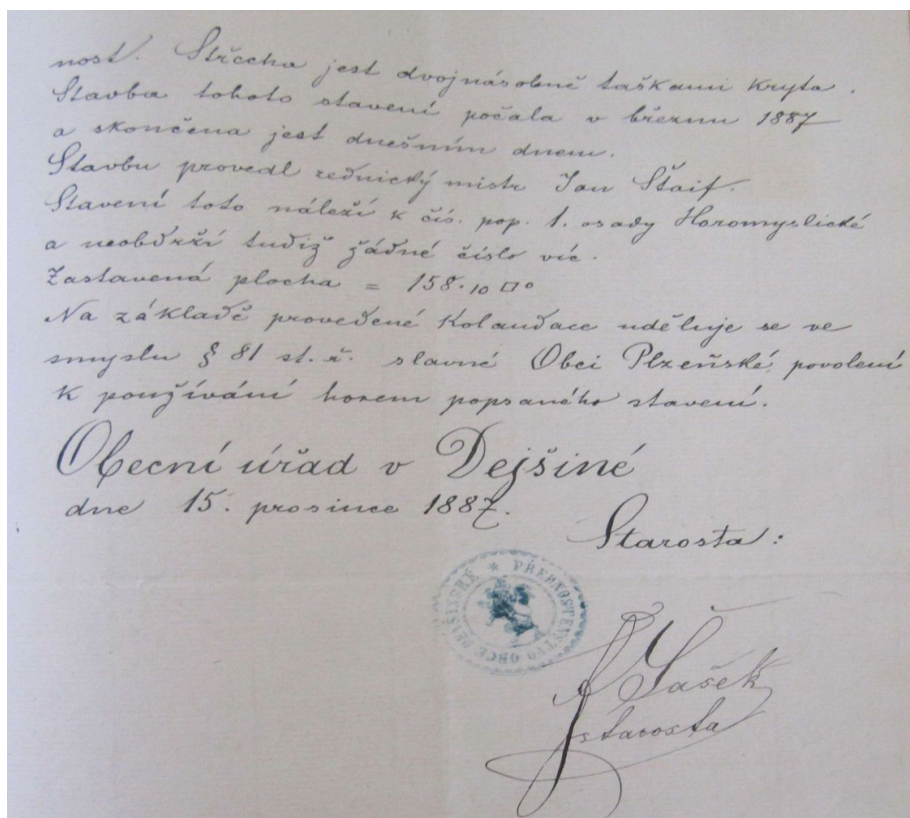 nost. Střecha jest dvojnásobně taškami kryta.
Stavba tohoto stavení počala v březnu 1887
a skončena jest dnešním dnem.
Stavbu provedl zednický mistr Jan Štaif.
Stavení toto náleží k čís. pop. 1. osady Horomyslické
a neobdrží tudíž žádné číslo víc.
Zastavená plocha = 158.10 □°
Na základě provedené kolaudace uděluje se ve
smyslu § 81 st. ř. slavné Obci Plzeňské povolení
k používání horem popsaného stavení.
Obecní úřad v Dejšině
dne 15. prosince 1887.
Starosta:
PŘEDNOSTENSTVO OBCE DEJŠINSKÉ
Sašek
starosta